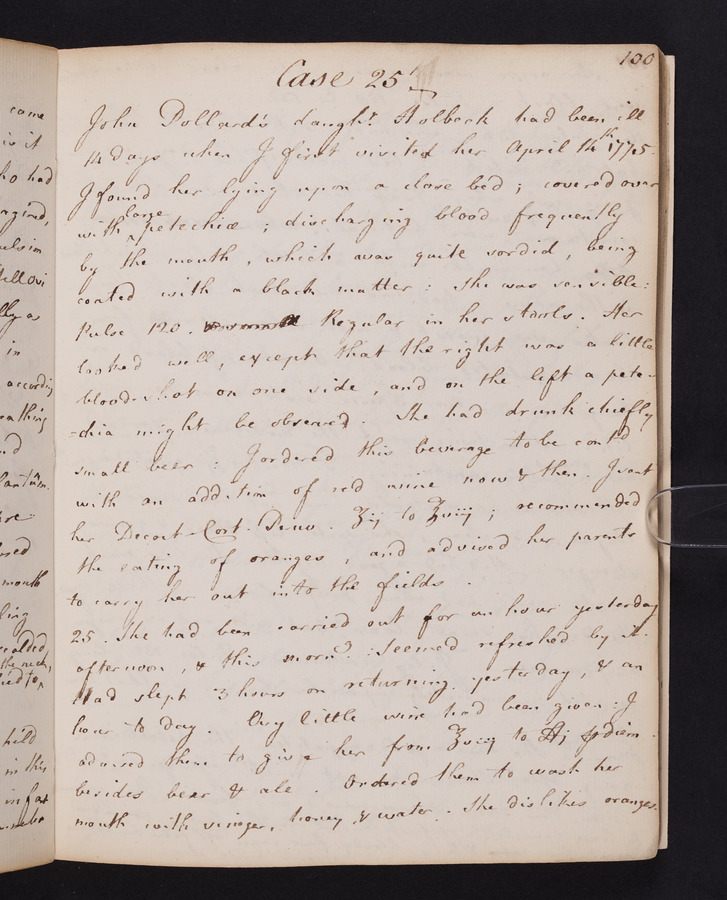 100
Case 25th
John Pollard's daughr. Holbeck had been ill
14 days when I first visited her April 14th 1775.
I found her lying upon a close bed; covered over
with large petechiæ; discharging blood frequently
by the mouth, which was quite sordid, being
coated with a black matter: she was sensible:
Pulse 120. Regular in her stools. Her
looked well, except that the right was a little
blood-shot on one side, and on the left a pete-
-chia might be observed. She had drunk chiefly
small beer: I ordered this beverage to be contd
with an addition of red wine now & then. I sent
her Decoct. Cort. Peruv. ℥ij to ℥viij; recommended
the eating of oranges, and advised her parents
to carry her out into the fields.
25. She had been carried out for an hour yesterday
afternoon, & this morng. Seemed refreshed by it.
Had slept 3 hours on returning yesterday, & an
hour to day. Very little wine had been given: I
advised them to give her from ℥viij to ℔j ℘ diem
besides beer & ale. Ordered them to wash her
mouth with vinegar, honey & water. She dislikes oranges.
came
is it
ho had
in
according
nd
mouth
held
in this